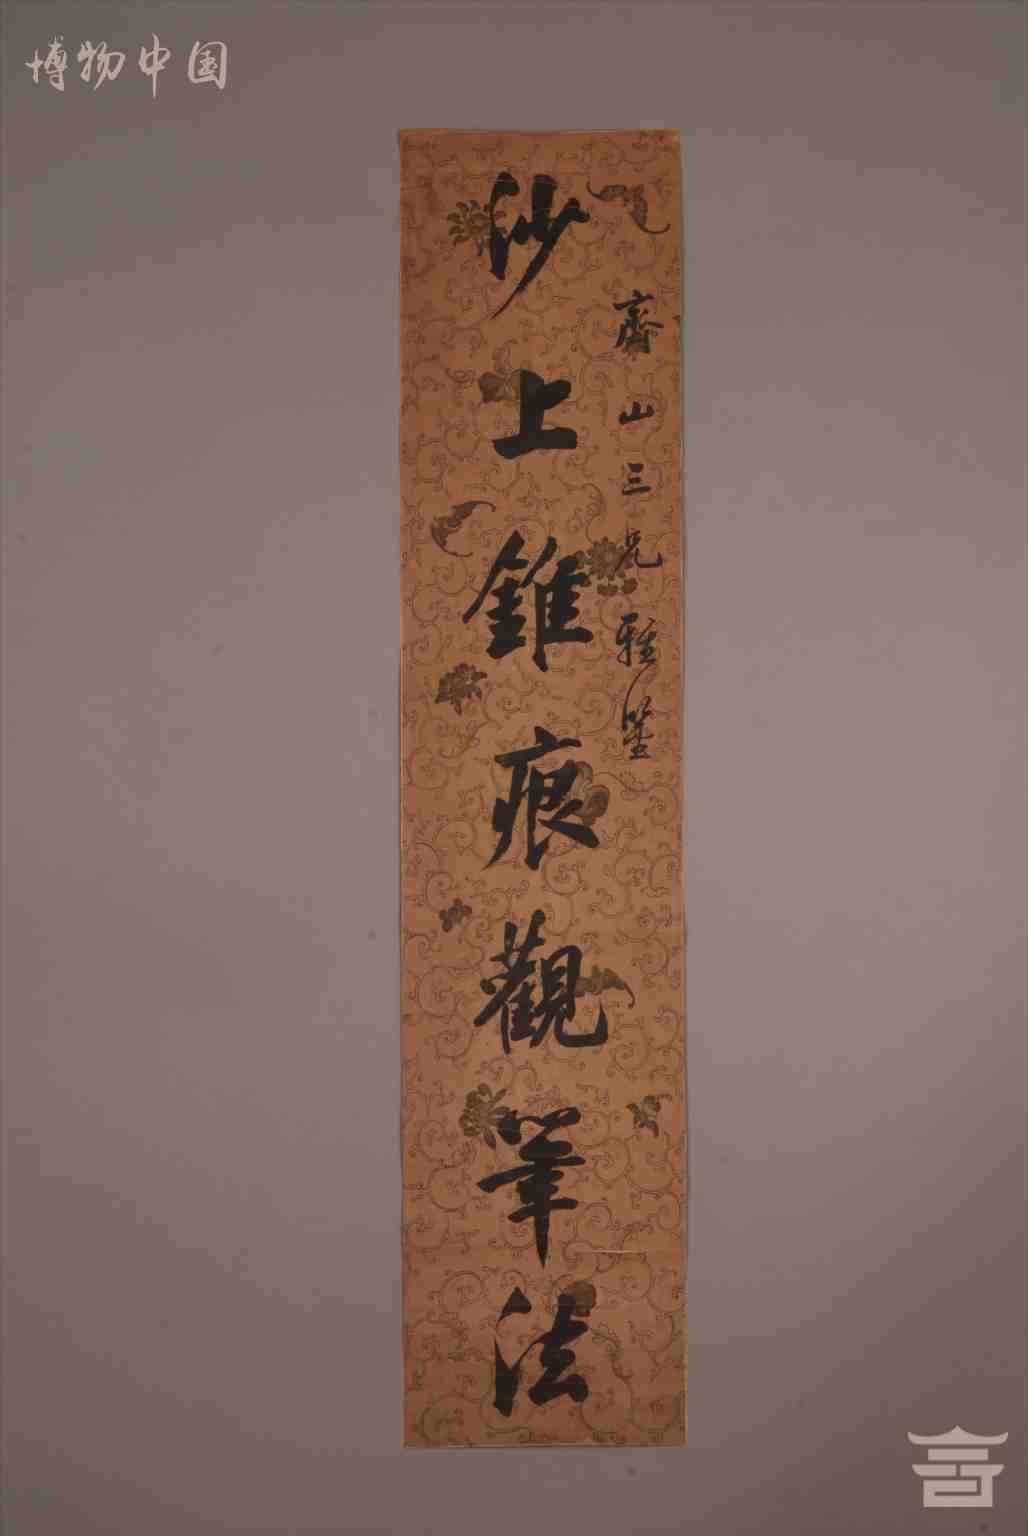 博物中国
齋山三兄雅鑒
沙上錐痕觀筆法